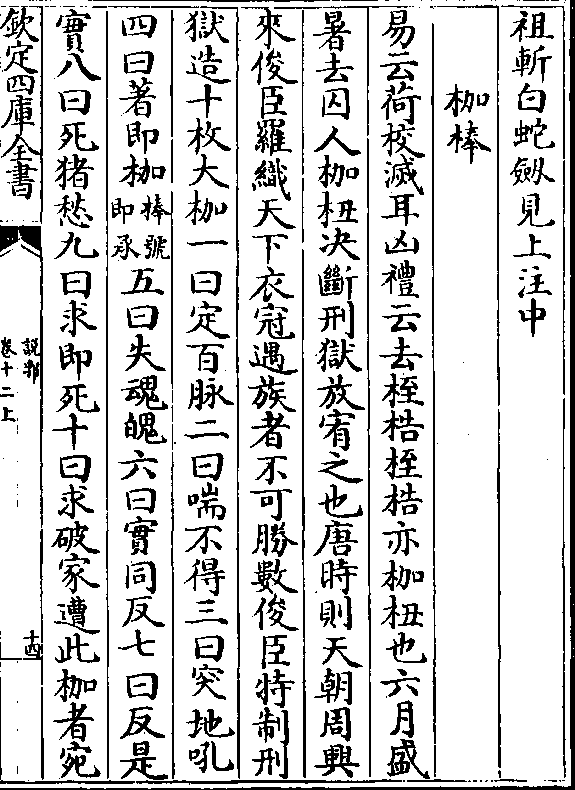 祖斬白蛇劔見上注中
枷棒
易云荷校滅耳凶禮云去桎梏桎梏亦枷杻也六月盛
暑去囚人枷杻决斷刑獄放宥之也唐時則天朝周興
來俊臣羅織天下衣冠遇族者不可勝數俊臣特制刑
獄造十枚大枷一曰定百脉二曰喘不得三曰突地吼
四曰著即枷棒號即承五曰失魂魄六曰實同反七曰反是
實八曰死猪愁九曰求即死十曰求破家遭此枷者宛
欽定四庫全書
說郛
卷十二上
十四